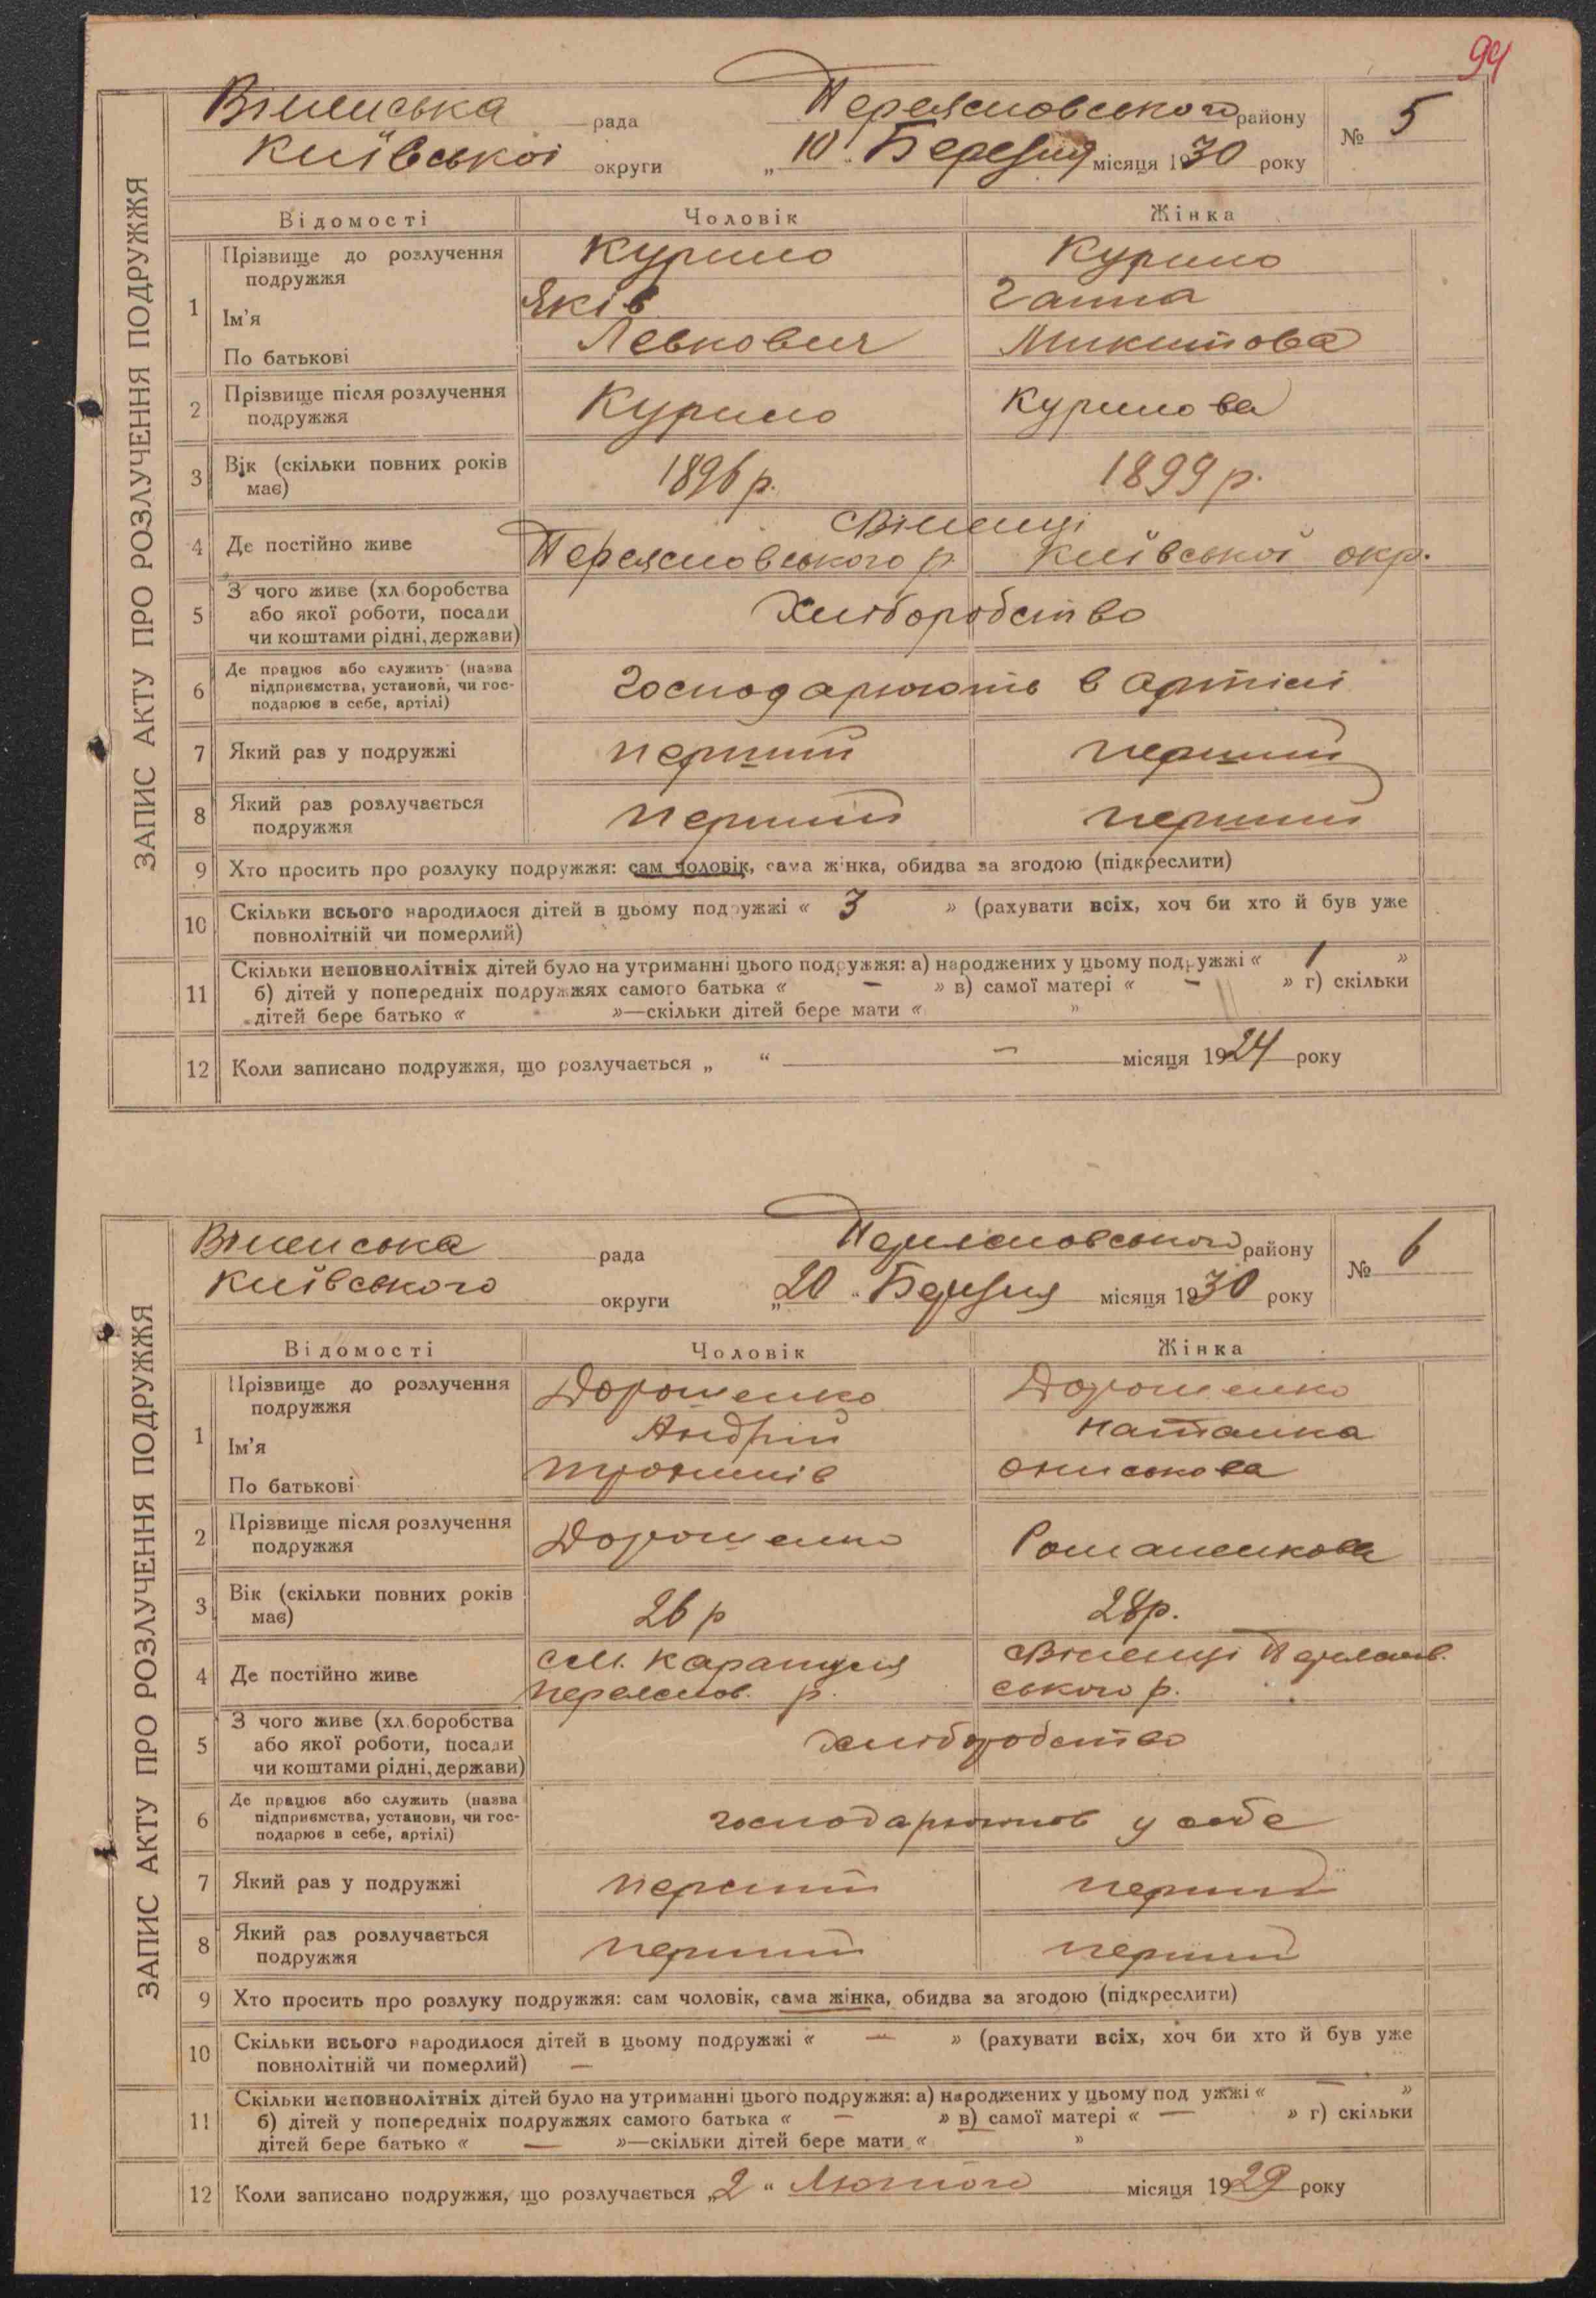 94
ЗАПИС АКТУ ПРО РОЗЛУЧЕННЯ ПОДРУЖЖЯ
Віненська рада Переяславського району № 5
Київської округи „10“ Березня місяця 1930 року
Відомості Чоловік Жінка
1 Прізвище до розлучення подружжя Курило Курило
Ім'я Яків Ганна
По батькові Левкович Микитова
2 Прізвище після розлучення подружжя Курило Курилова
3 Вік (скільки повних років має) 1896 р. 1899 р.
4 Де постійно живе с Віненці
Переяславського р. Київської окр.
5 З чого живе (хліборобства
або якої роботи, посади Хліборобство
чи коштами рідні, держави)
6 Де працює або служить (назва
підприємства, установи, чи гос- Господарюють в артілі
подарює в себе, артілі)
7 Який раз у подружжі перший перший
8 Який раз розлучається подружжя перший перший
9 Хто просить про розлуку подружжя: сам чоловік, сама жінка, обидва за згодою (підкреслити)
10 Скільки всього народилося дітей в цьому подружжі « 3 » (рахувати всіх, хоч би хто й був уже
повнолітній чи померлий)
11 Скільки неповнолітніх дітей було на утриманні цього подружжя: а) народжених у цьому подружжі « 1 »
б) дітей у попередніх подружжях самого батька « – » в) самої матері « – » г) скільки
дітей бере батько « »—скільки дітей бере мати « »
12 Коли записано подружжя, що розлучається „ “ – місяця 1924 року
ЗАПИС АКТУ ПРО РОЗЛУЧЕННЯ ПОДРУЖЖЯ
Віненська рада Переяславського району № 6
Київського округи „20“ Березня місяця 1930 року
Відомості Чоловік Жінка
1 Прізвище до розлучення подружжя Дорошенко Дорошенко
Ім'я Андрій Наталка
По батькові Ониськова
2 Прізвище після розлучення подружжя Дорошенко Романенкова
3 Вік (скільки повних років має) 26 р 28 р.
4 Де постійно живе см. Каратуля с Віненці Переяслав.
Переяслов. р. ського р.
5 З чого живе (хліборобства
або якої роботи, посади хліборобство
чи коштами рідні, держави)
6 Де працює або служить (назва
підприємства, установи, чи гос- господарюють у себе
подарює в себе, артілі)
7 Який раз у подружжі перший перший
8 Який раз розлучається подружжя перший перший
9 Хто просить про розлуку подружжя: сам чоловік, сама жінка, обидва за згодою (підкреслити)
10 Скільки всього народилося дітей в цьому подружжі « — » (рахувати всіх, хоч би хто й був уже
повнолітній чи померлий) —
11 Скільки неповнолітніх дітей було на утриманні цього подружжя: а) народжених у цьому под ужжі « — »
б) дітей у попередніх подружжях самого батька « – » в) самої матері « — » г) скільки
дітей бере батько « — »—скільки дітей бере мати « »
12 Коли записано подружжя, що розлучається „2“ Лютого місяця 1929 року